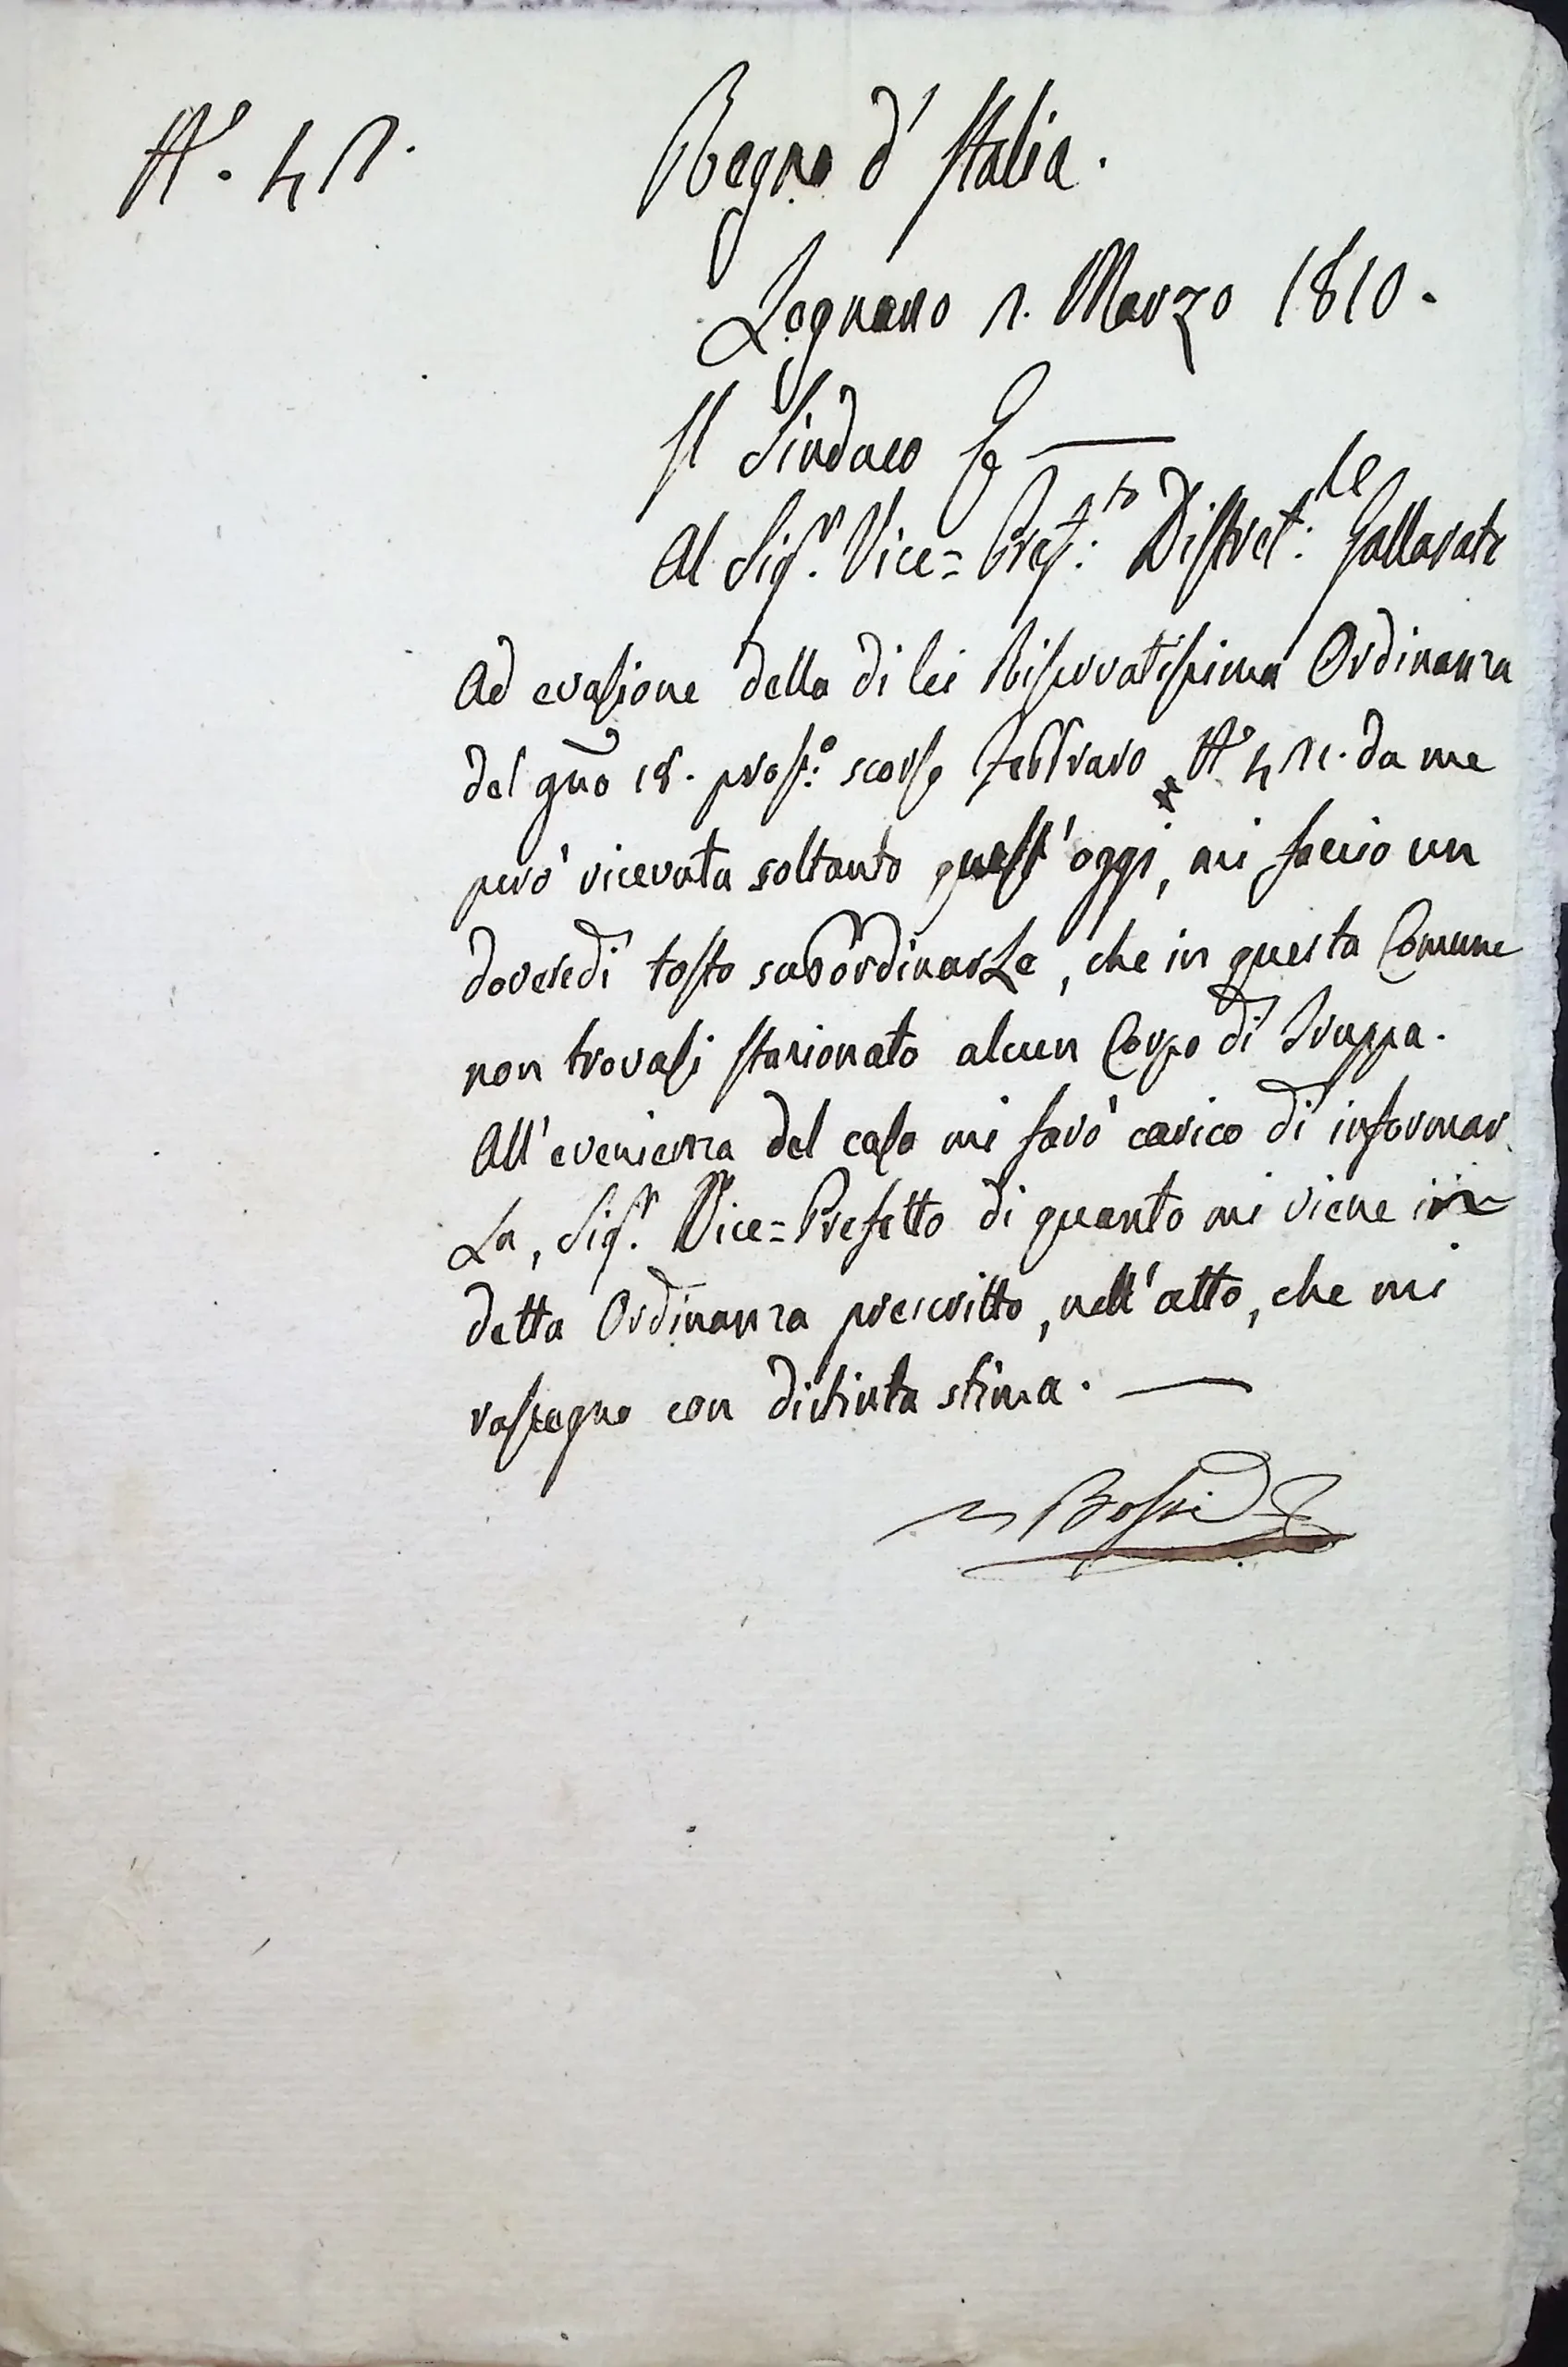 N.° 47.
Regno d'Italia.
Legnano 7. Marzo 1810.
Il Sindaco
Al Sig.r Vice=Pref.to Distret.le Gallarate
Ad evasione della di lei Riservatissima Ordinanza
del gño 18. pross.° scorso Febbraro N.° 471. da me
però ricevuta soltanto quest'oggi, mi faccio un
dovere di tosto subordinarLe, che in questa Comune
non trovasi stazionato alcun Corpo di Truppa.
All'evenienza del caso mi farò carico di informar
La, Sig.r Vice=Prefetto di quanto mi viene in
detta Ordinanza prescritto, nell'atto, che mi
rassegno con distinta stima.
Bossi